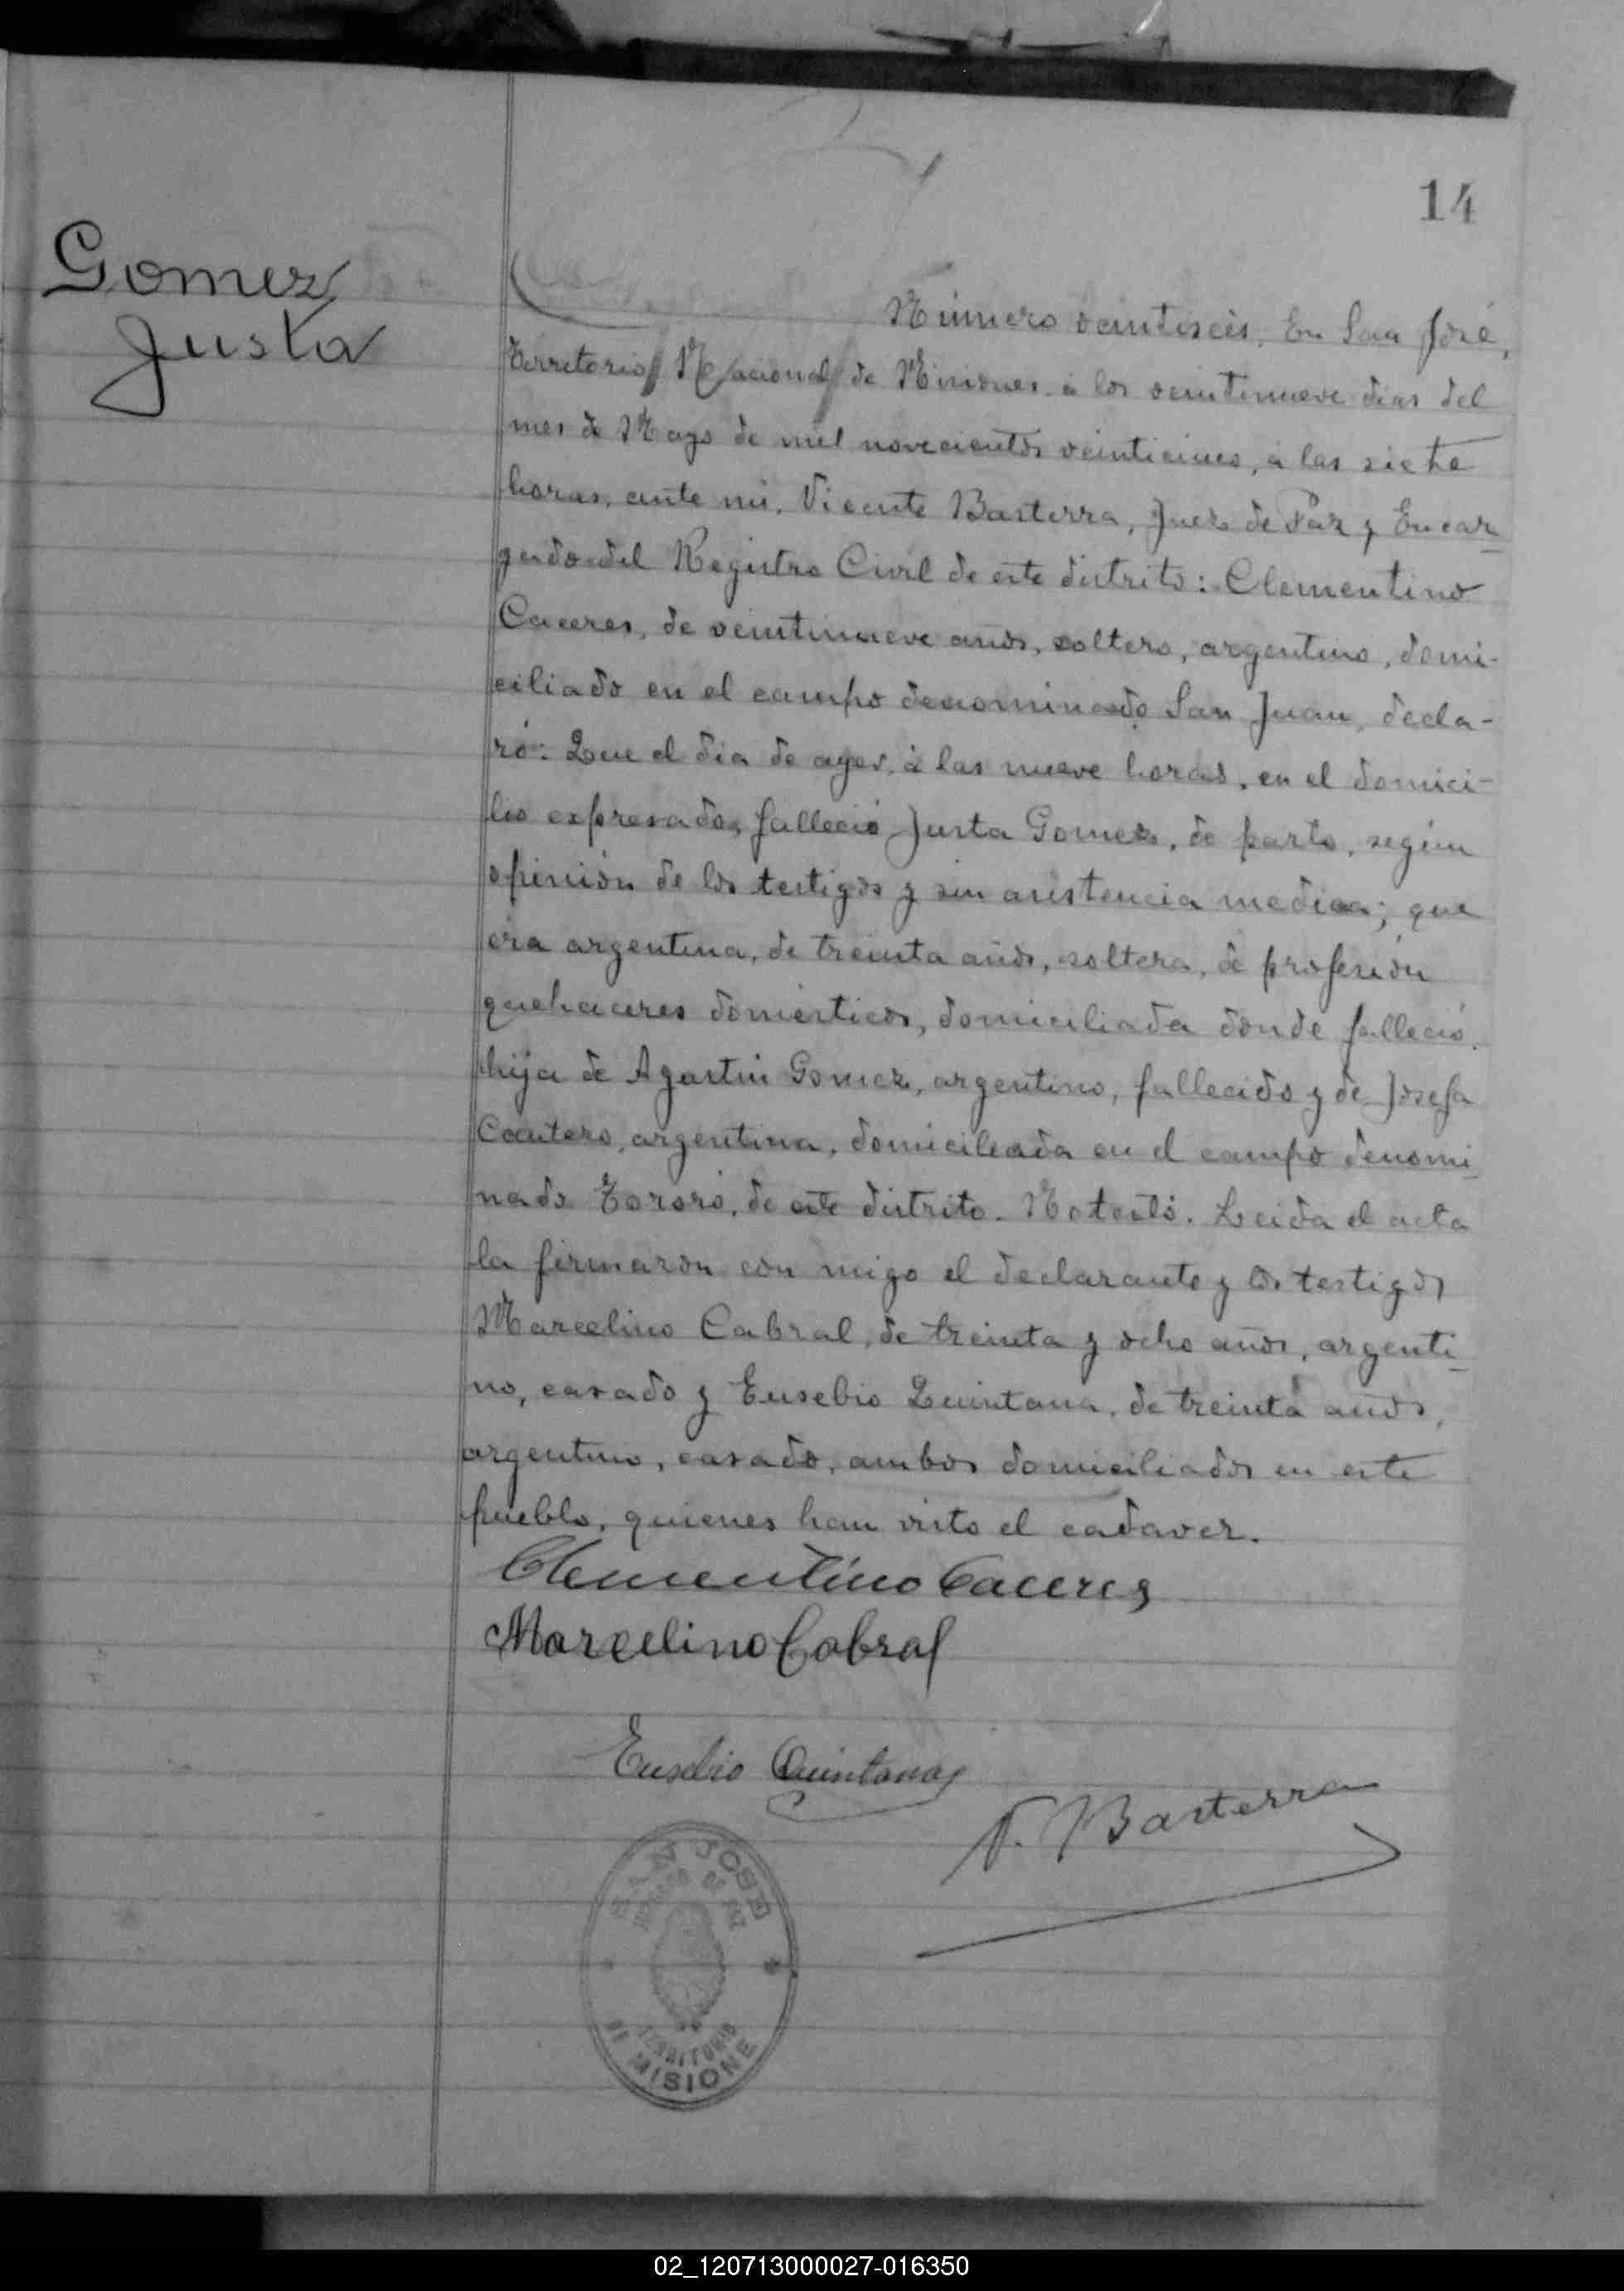 14
Gomez
Justa
Número veintiseis. En San José,
Territorio Nacional de Misiones á los veintinueve dias del
mes de Mayo de mil novecientos veinticinco, á las siete
horas, ante mi, Vicente Basterra, Juez de Paz y Encar-
gado del Registro Civil de este distrito: Clementino
Caceres, de veintinueve años, soltero, argentino, domi-
ciliado en el campo denominado San Juan, decla-
ró: Que el dia de ayer, á las nueve horas, en el domici-
lio expresado, falleció Justa Gomez, de parto, según
opinión de los testigos y sin asistencia medica; que
era argentina, de treinta años, soltera, de profesión
quehaceres domésticos, domiciliada donde falleció,
hija de Agustin Gomez, argentino, fallecido y de Josefa
argentina, domiciliada en el campo denomi-
nado Tororó, de este distrito. No testó. Leida el acta
la firmaron con migo el declarante y los testigos
Marcelino Cabral, de treinta y ocho años, argenti-
no, casado y Eusebio Quintana, de treinta años,
argentino, casado, ambos domiciliados en este
pueblo, quienes han visto el cadaver.
Clementino Caceres
Marcelino Cabral
Eusebio Quintana
V. Basterra
SAN JOSE
JUZGADO DE PAZ
TERRITORIO
DE MISIONE
02_120713000027-016350